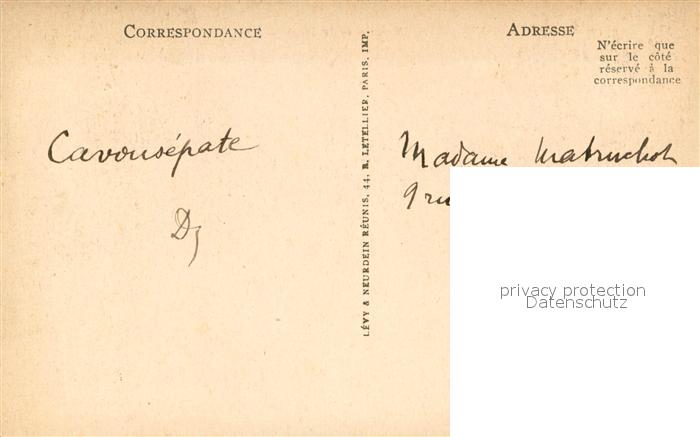 CORRESPONDANCE
Cavousépate
LÉVY & NEURDEIN RÉUNIS, 44, R. LETELLIER, PARIS, IMP.
ADRESSE
N'écrire que
sur le côté
réservé à la
correspondance
Madame Matruchot
9 ru
privacy protection
Datenschutz